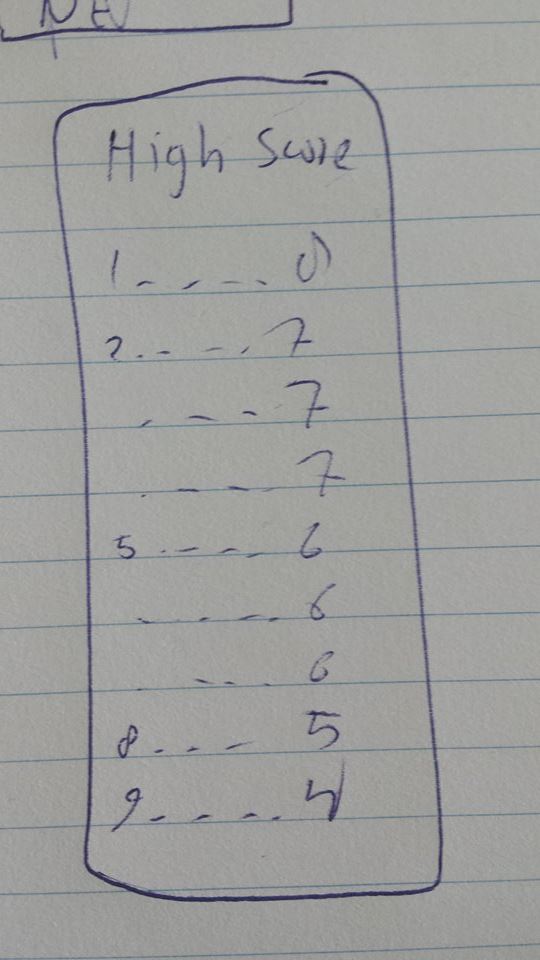 High Score
1.---. 8
2.---. 7
.--- 7
.--- 7
5.--- 6
.---. 6
.---. 6
8.--- 5
9.---. 4